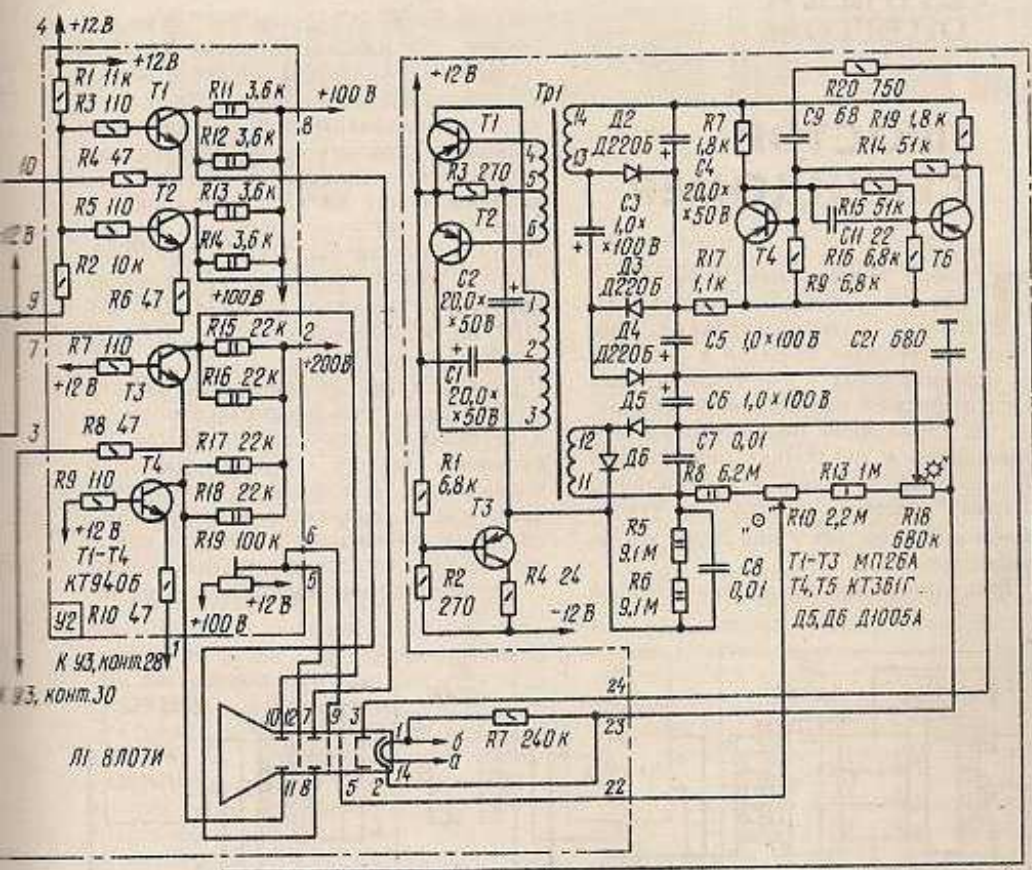 4 +12 В
+12 В
R1 11к
R3 110
T1
R11 3,6 к
+100 В
8
R12 3,6 к
10
R4 47
T2
R13 3,6 к
R5 110
R14 3,6 к
R2 10к
+100 В
9
R6 47
7
R7 110
R15 22 к
2
+200В
+12 В
T3
R16 22 к
3
R8 47
R17 22к
T4
R9 110
R18 22 к
+12 В
R19 100 к
6
5
T1-T4
КТ940Б
+12 В
+100 В
У2
R10 47
1
К У3, конт.28
У3, конт.30
Л1 8ЛО7И
10 12 7 9 3
1
14
11 8 5 2
б
а
R7 240 к
24
23
22
+12 В
Тр1
T1
R3 270
T2
4
5
6
C2
20,0×
×50В
1
2
3
C1
20,0×
×50В
R1
6,8к
T3
R2
270
R4 24
-12 В
14
13
Д2
Д220Б
C3
1,0×
×100 В
Д3
Д220Б
Д4
Д220Б
Д5
12
11
Д6
R7
1,8к
C4
20,0×
×50В
R17
1,1 к
C5 1,0×100 В
C6 1,0×100 В
C7 0,01
R8 6,2М
R5
9,1 М
R6
9,1 М
C8
0,01
R20 750
C9 68
R19 1,8 к
R14 51 к
R15 51к
T4
C11 22
R16 6,8 к
T6
R9 6,8 к
C21 680
R13 1 М
"⊙"
R10 2,2 М
R18
680к
T1-T3 МП26А
T4,T5 КТ361Г
Д5,Д6 Д1005А